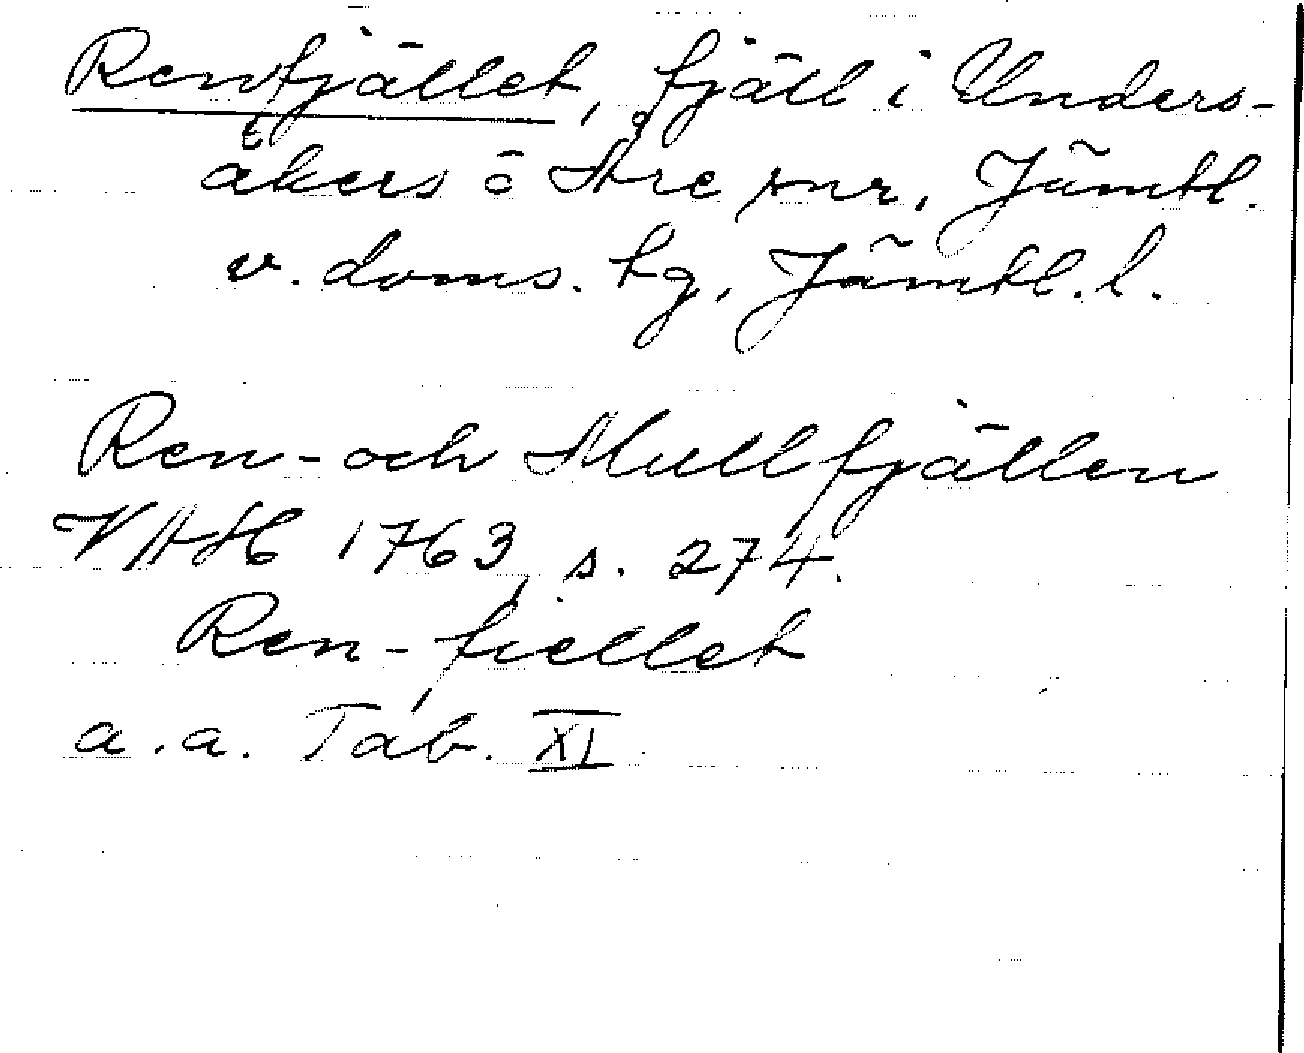 Renfjället, fjäll i Unders-
åkers o Åre snr, Jämtl.
v. doms. tg, Jämtl. l.
Ren- och Mullfjällen
VAH 1763, s. 274.
Ren-fiellet
a.a. Tab. XI